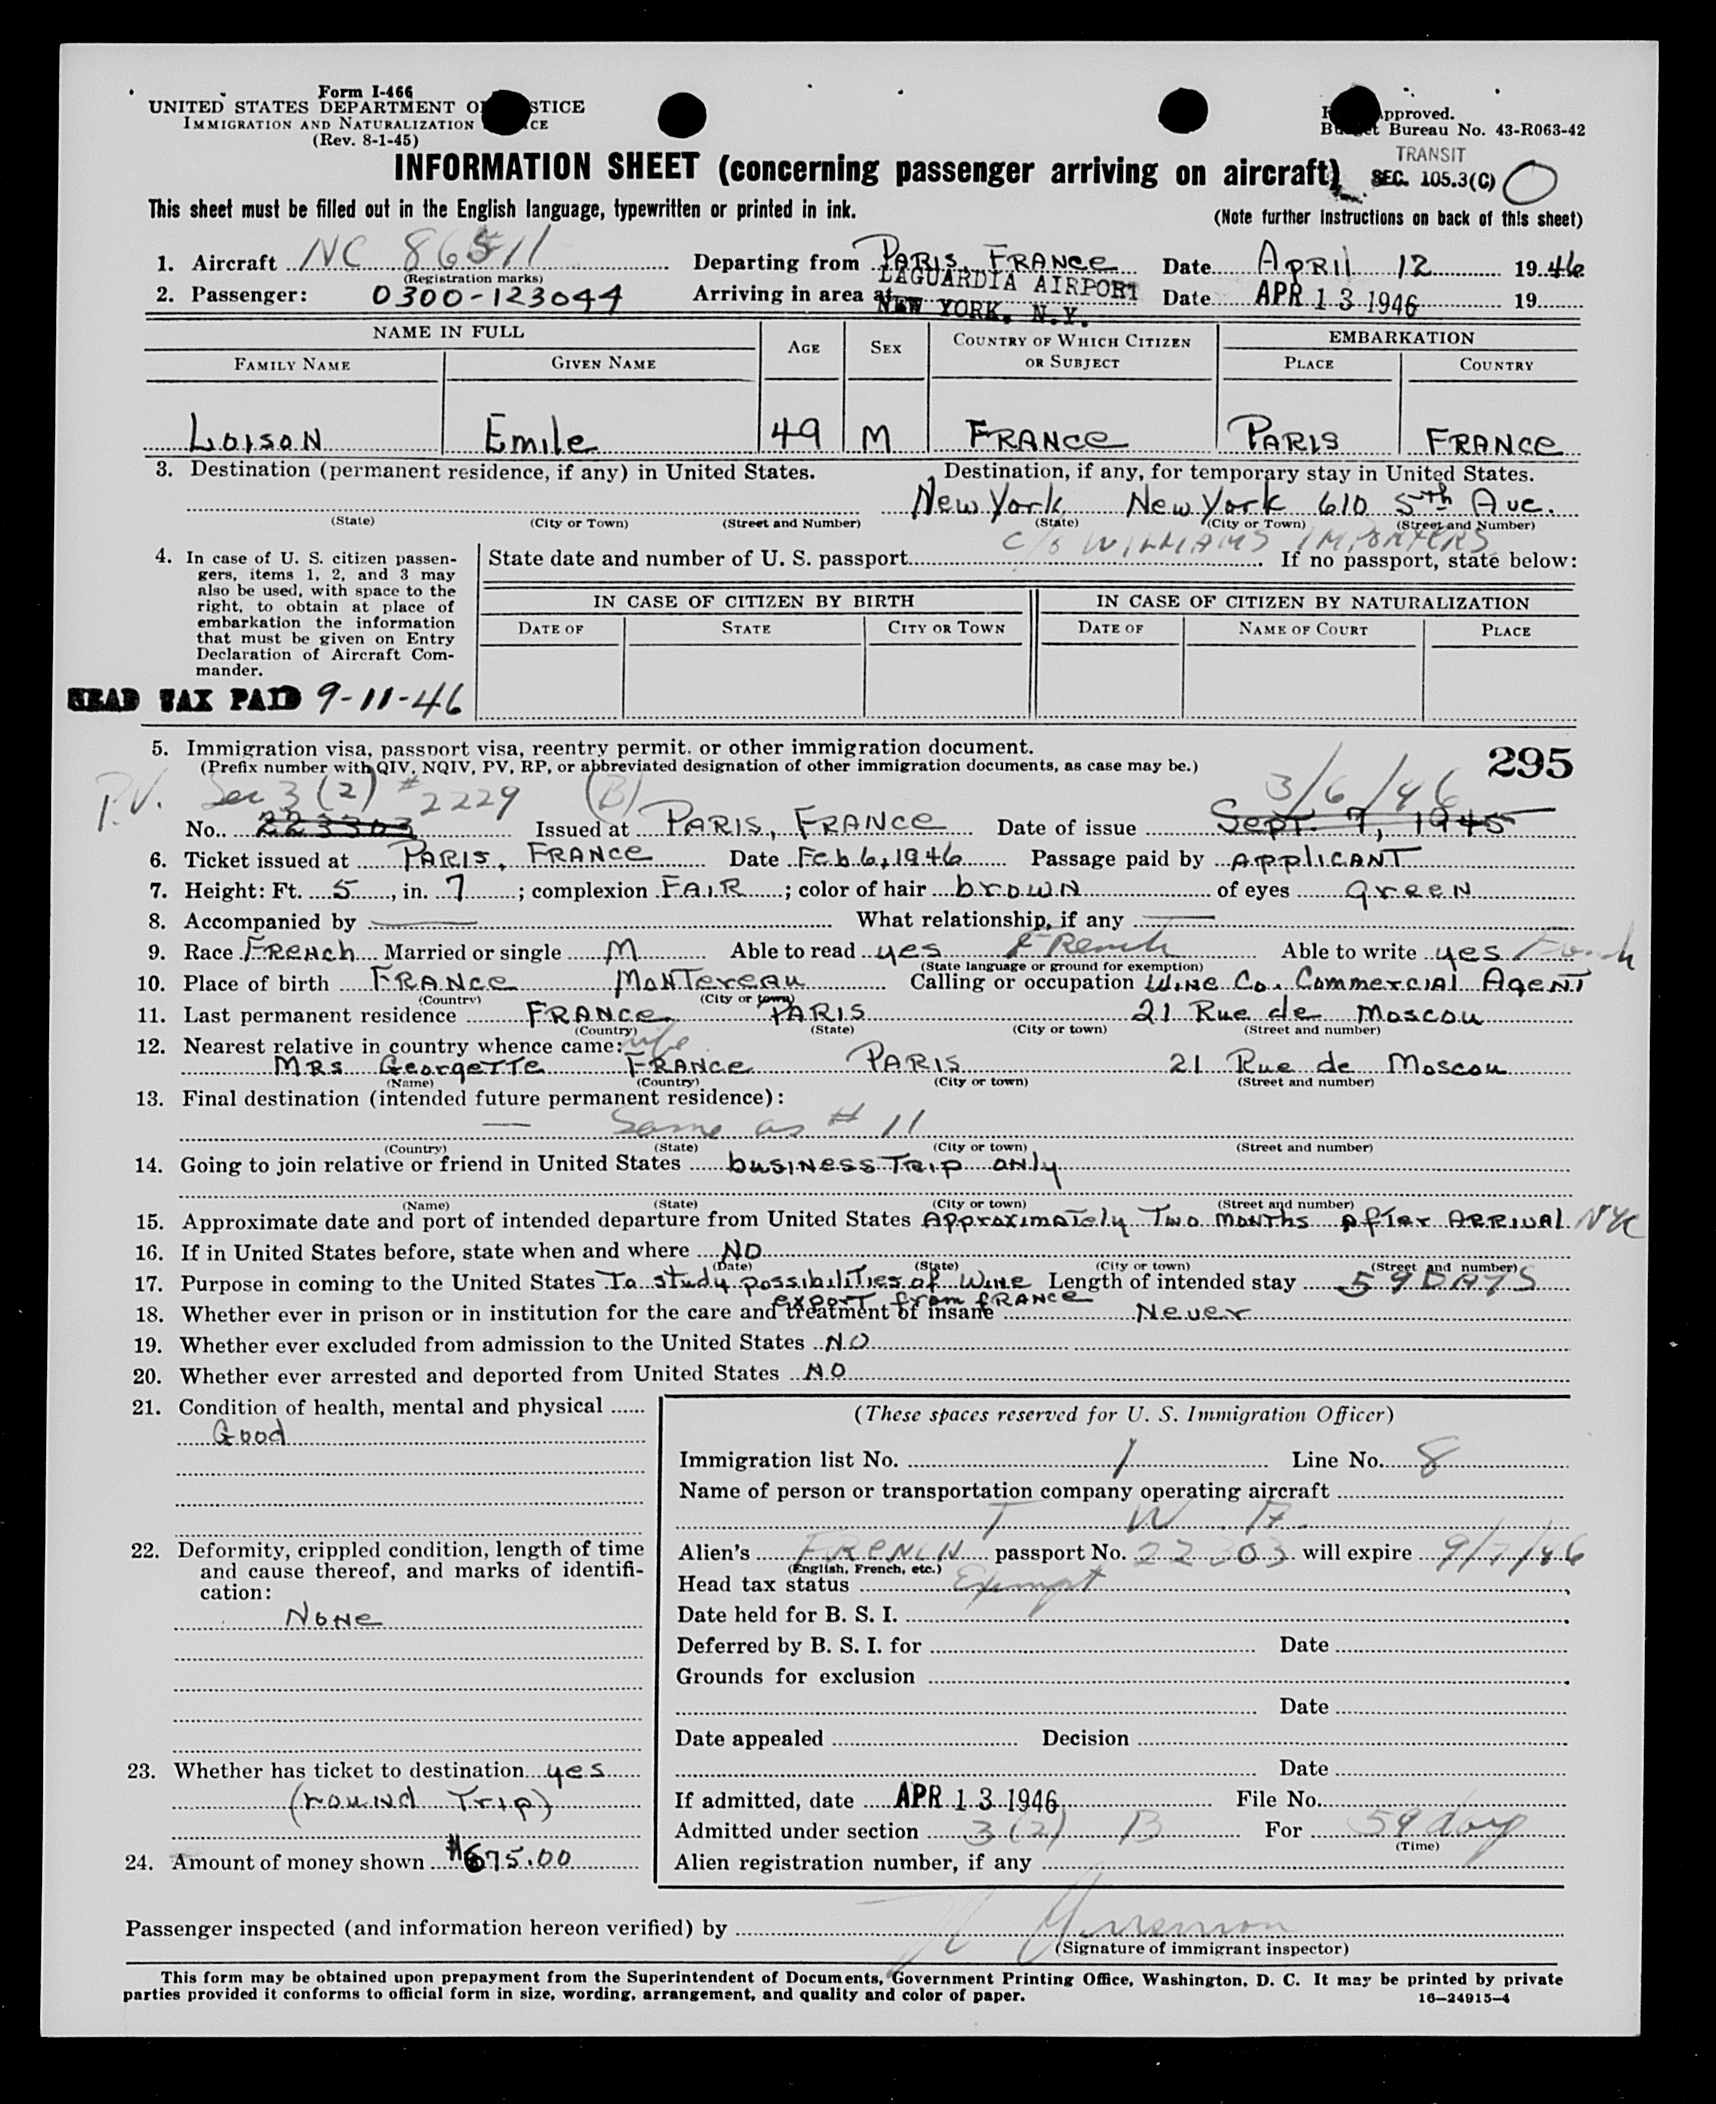 Form I-466
UNITED STATES DEPARTMENT OF JUSTICE
IMMIGRATION AND NATURALIZATION
(Rev. 8-1-45)
Approved.
Bureau No. 43-R063-42
TRANSIT
SEC. 105.3(C)
INFORMATION SHEET (concerning passenger arriving on aircraft)
This sheet must be filled out in the English language, typewritten or printed in ink.
(Note further instructions on back of this sheet)
1. Aircraft NC 86511 Departing from PARIS, FRANCE Date APRIL 12 1946
(Registration marks)
2. Passenger: 0300-123044 Arriving in area at LAGUARDIA AIRPORT NEW YORK, N.Y. Date APR 13 1946 19
NAME IN FULL AGE SEX COUNTRY OF WHICH CITIZEN OR SUBJECT EMBARKATION
FAMILY NAME GIVEN NAME PLACE COUNTRY
LOISON Emile 49 M FRANCE PARIS FRANCE
3. Destination (permanent residence, if any) in United States. Destination, if any, for temporary stay in United States.
New York New York 610 5th Ave.
(State) (City or Town) (Street and Number) (State) (City or Town) (Street and Number)
C/O WILLIAMS IMPORTERS
4. In case of U. S. citizen passen-
gers, items 1, 2, and 3 may
also be used, with space to the
right, to obtain at place of
embarkation the information
that must be given on Entry
Declaration of Aircraft Com-
mander.
State date and number of U. S. passport If no passport, state below:
IN CASE OF CITIZEN BY BIRTH IN CASE OF CITIZEN BY NATURALIZATION
DATE OF STATE CITY OR TOWN DATE OF NAME OF COURT PLACE
HEAD TAX PAID 9-11-46
5. Immigration visa, passport visa, reentry permit, or other immigration document.
(Prefix number with QIV, NQIV, PV, RP, or abbreviated designation of other immigration documents, as case may be.)
295
P.V. Sec 3 (2) # 2229 (B) 3/6/46
No. 223303 Issued at PARIS, FRANCE Date of issue Sept. 7, 1945
6. Ticket issued at PARIS, FRANCE Date Feb. 6, 1946 Passage paid by APPLICANT
7. Height: Ft. 5, in. 7; complexion FAIR; color of hair brown of eyes green
8. Accompanied by — What relationship, if any —
9. Race FRENCH Married or single M Able to read yes FRench Able to write yes French
(State language or ground for exemption)
10. Place of birth FRANCE MONTEREAU Calling or occupation WINE Co. Commercial AGENT
(Country) (City or town)
11. Last permanent residence FRANCE PARIS 21 Rue de Moscou
(Country) (State) (City or town) (Street and number)
12. Nearest relative in country whence came: wife
MRS GeorgeTTe FRANCE PARIS 21 Rue de Moscou
(Name) (Country) (City or town) (Street and number)
13. Final destination (intended future permanent residence):
— Same as # 11
(Country) (State) (City or town) (Street and number)
14. Going to join relative or friend in United States business Trip only
(Name) (State) (City or town) (Street and number)
15. Approximate date and port of intended departure from United States Approximately Two months after ARRIVAL NYC
16. If in United States before, state when and where NO
(Date) (State) (City or town) (Street and number)
17. Purpose in coming to the United States To study possibilities of Wine Length of intended stay 59 DAYS
export from FRANCE
18. Whether ever in prison or in institution for the care and treatment of insane Never
19. Whether ever excluded from admission to the United States NO
20. Whether ever arrested and deported from United States NO
21. Condition of health, mental and physical
Good
22. Deformity, crippled condition, length of time
and cause thereof, and marks of identifi-
cation:
None
23. Whether has ticket to destination yes
(round Trip)
24. Amount of money shown $675.00
(These spaces reserved for U. S. Immigration Officer)
Immigration list No. 1 Line No. 8
Name of person or transportation company operating aircraft
T W A.
Alien's FRENCH passport No. 22303 will expire 9/7/46
(English, French, etc.)
Head tax status Exempt
Date held for B. S. I.
Deferred by B. S. I. for Date
Grounds for exclusion
Date
Date appealed Decision
Date
If admitted, date APR 13 1946 File No.
Admitted under section 3(2) B For 59 day
(Time)
Alien registration number, if any
Passenger inspected (and information hereon verified) by
(Signature of immigrant inspector)
This form may be obtained upon prepayment from the Superintendent of Documents, Government Printing Office, Washington, D. C. It may be printed by private
parties provided it conforms to official form in size, wording, arrangement, and quality and color of paper.
16—24915-4